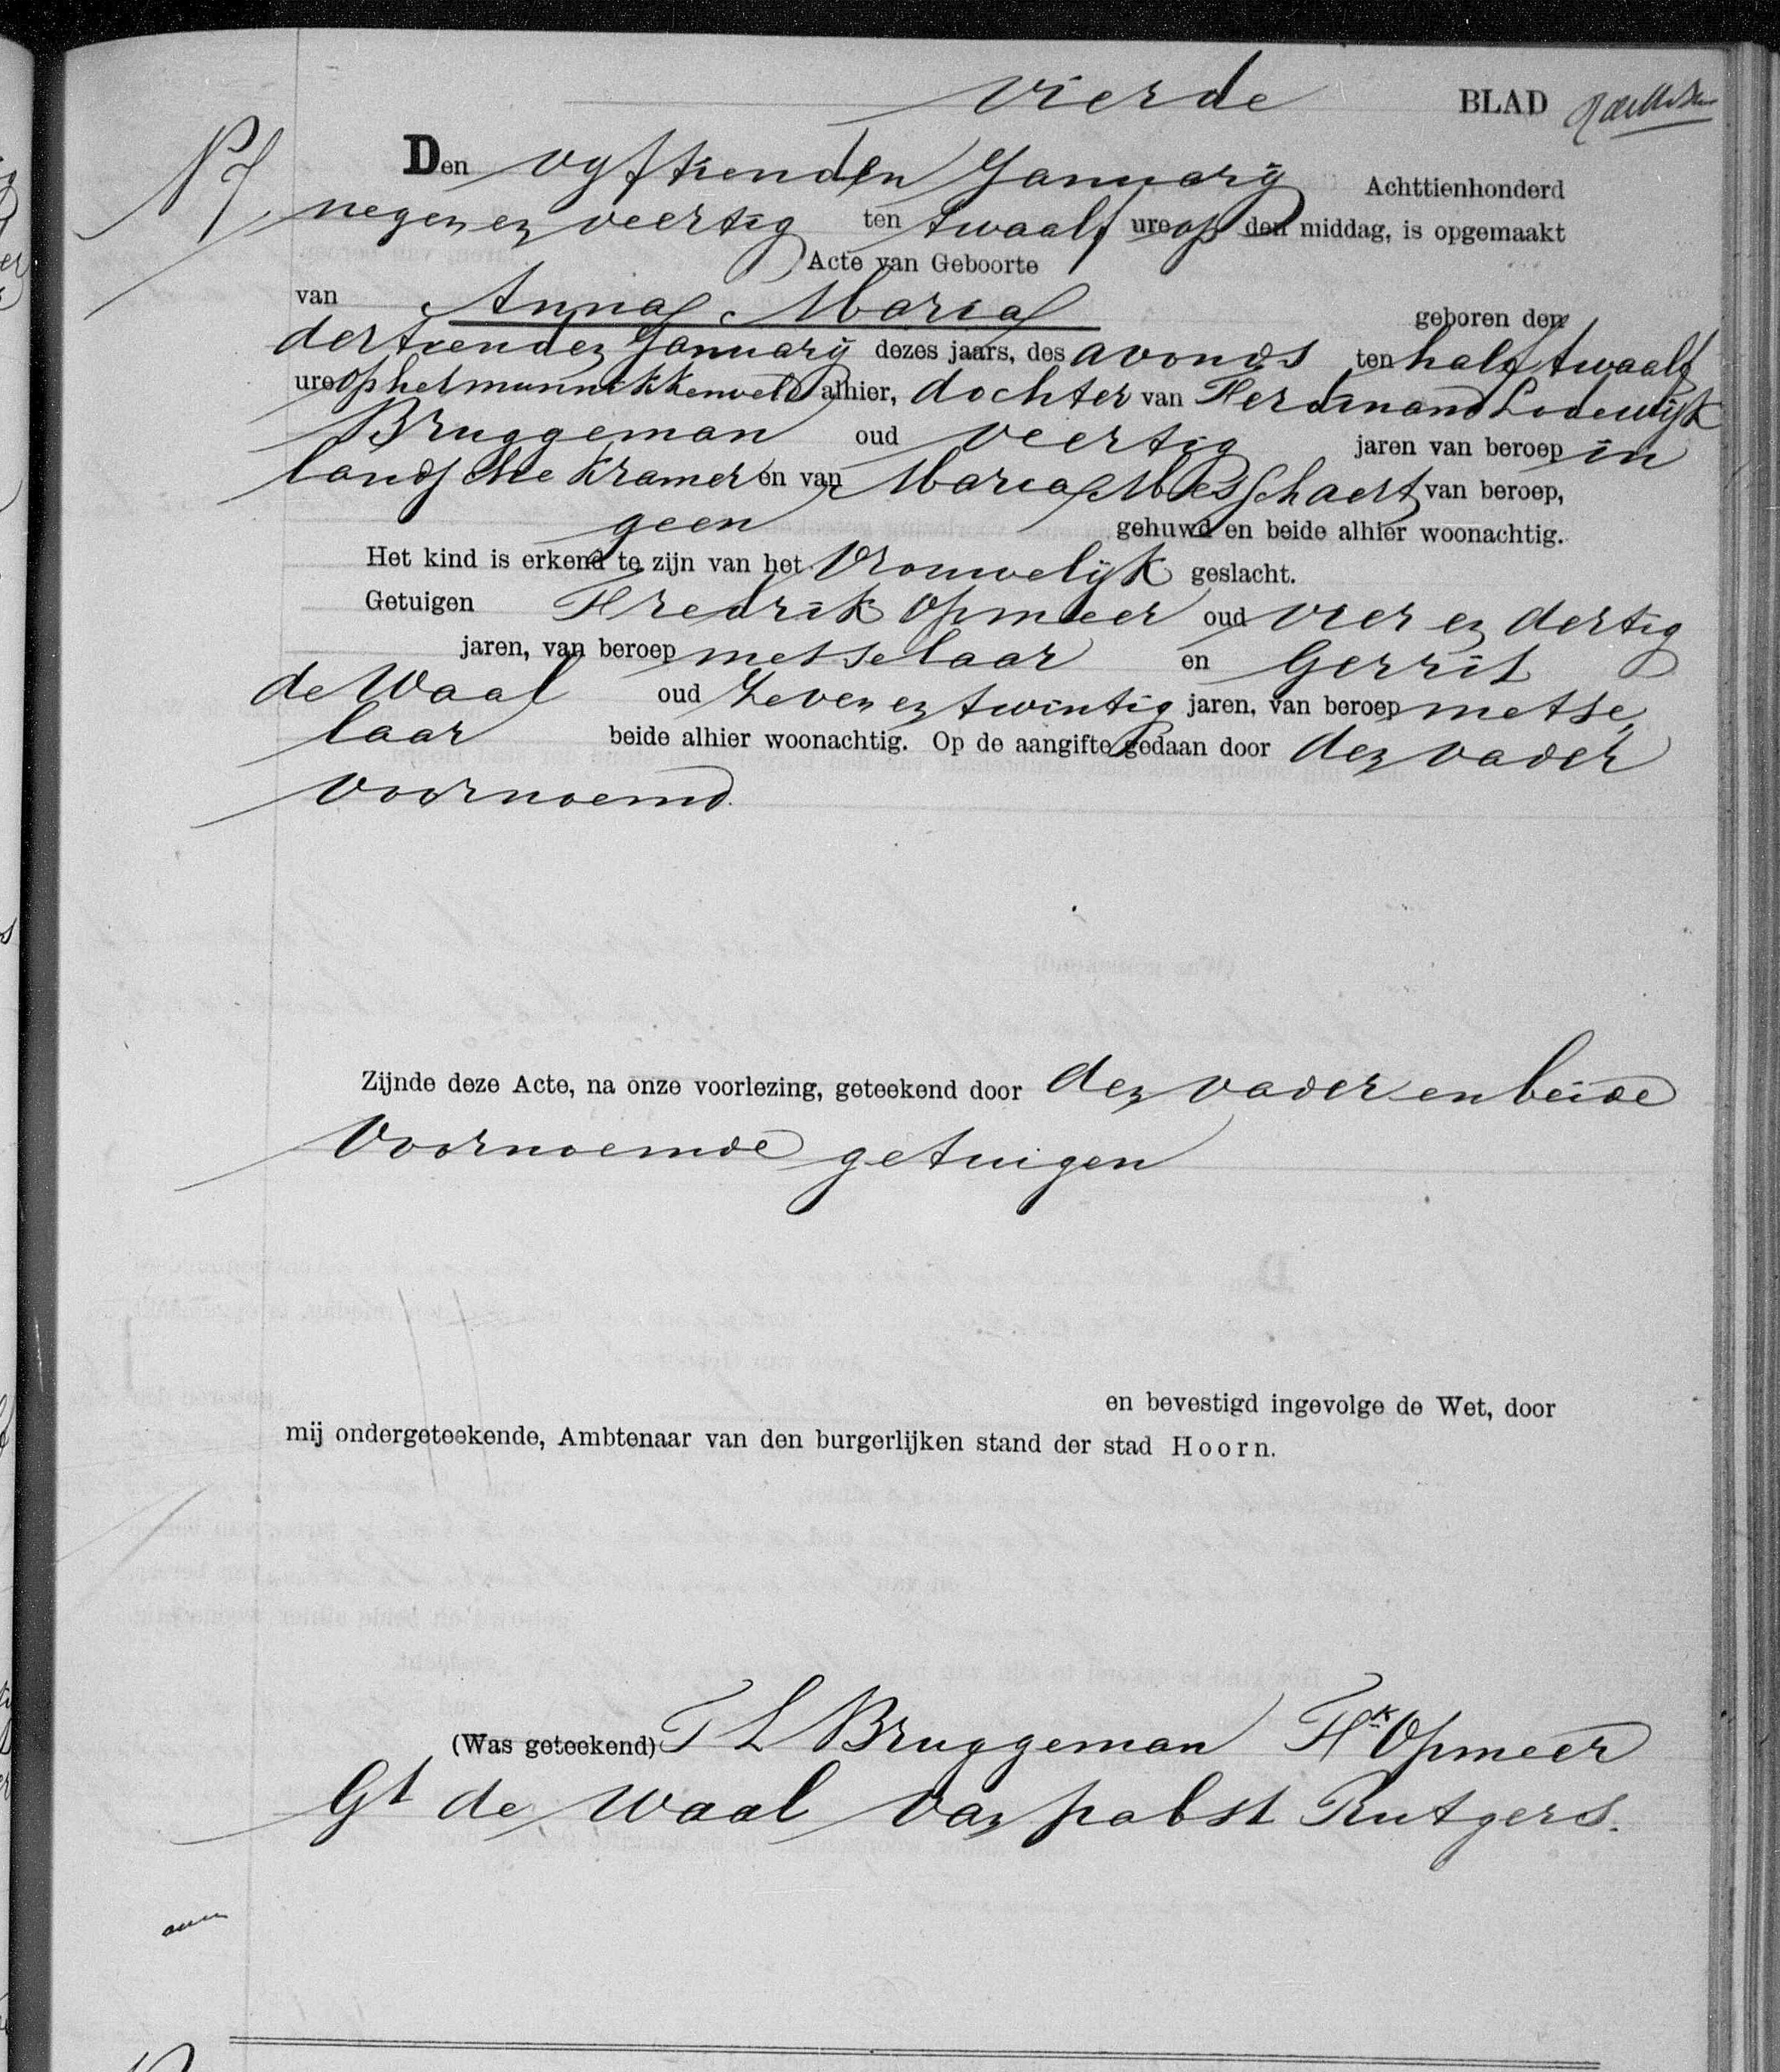 vierde BLAD
N 7
Den vyftienden January Achttienhonderd
negen en veertig ten twaalf ure op den middag, is opgemaakt
Acte van Geboorte
van Anna Maria geboren den
dertienden January dezes jaars, des avonds ten half twaalf
ure op het munnikkenveld alhier, dochter van Ferdinand Lodewijk
Bruggeman oud veertig jaren van beroep in
landsche kramer en van Maria Messchaert van beroep,
geen gehuwd en beide alhier woonachtig.
Het kind is erkend te zijn van het Vrouwelijk geslacht.
Getuigen Fredrik Opmeer oud vier en dertig
jaren, van beroep metselaar en Gerrit
de Waal oud Zeven en twintig jaren, van beroep metse
laar beide alhier woonachtig. Op de aangifte gedaan door den vader
voornoemd.
Zijnde deze Acte, na onze voorlezing, geteekend door den vader en beide
voornoemde getuigen
en bevestigd ingevolge de Wet, door
mij ondergeteekende, Ambtenaar van den burgerlijken stand der stad Hoorn.
(Was geteekend) F L Bruggeman Fk Opmeer
Gt de Waal van pabst Rutgers.